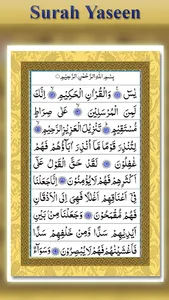 Surah Yaseen
بِسْمِ اللهِ الرَّحْمٰنِ الرَّحِيْمِ
يٰسٓ وَالْقُرْاٰنِ الْحَكِيْمِ اِنَّكَ
لَمِنَ الْمُرْسَلِيْنَ عَلٰى صِرَاطٍ
مُّسْتَقِيْمٍ تَنْزِيْلَ الْعَزِيْزِ الرَّحِيْمِ
لِتُنْذِرَ قَوْمًا مَّاۤ اُنْذِرَ اٰبَآؤُهُمْ فَهُمْ
غٰفِلُوْنَ لَقَدْ حَقَّ الْقَوْلُ عَلٰۤى
اَكْثَرِهِمْ فَهُمْ لَا يُؤْمِنُوْنَ اِنَّا جَعَلْنَا
فِيْۤ اَعْنَاقِهِمْ اَغْلٰلًا فَهِيَ اِلَى الْاَذْقَانِ
فَهُمْ مُّقْمَحُوْنَ وَجَعَلْنَا مِنْۢ بَيْنِ
اَيْدِيْهِمْ سَدًّا وَّمِنْ خَلْفِهِمْ سَدًّا
فَاَغْشَيْنٰهُمْ فَهُمْ لَا يُبْصِرُوْنَ وَسَوَآءٌ